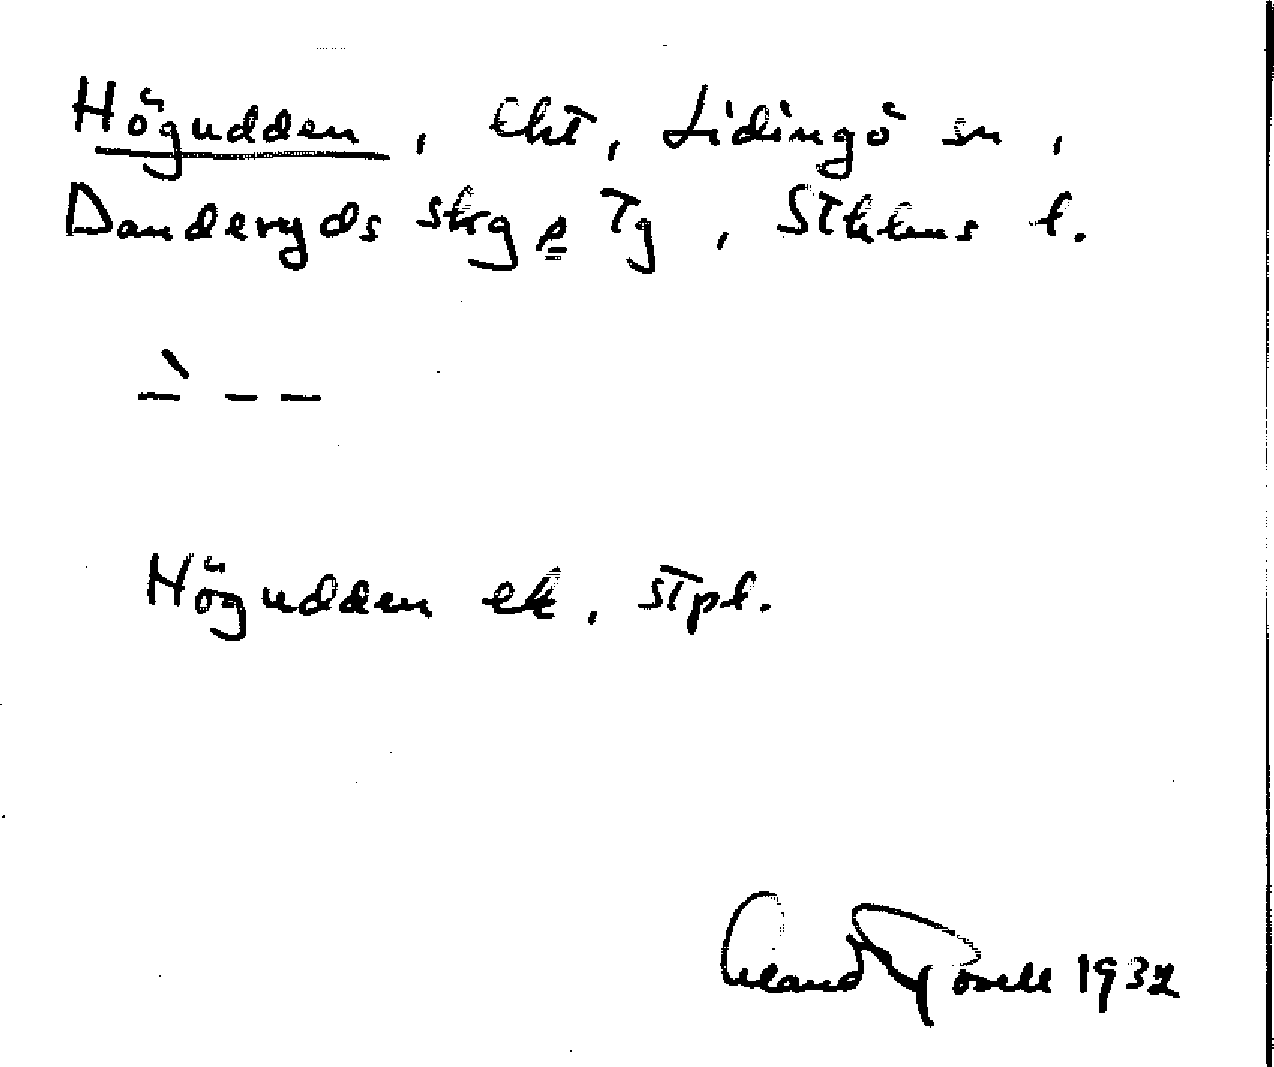 Högudden, Ekt, Lidingö sn,
Danderyds skg e Tg, Sthlms l.
Högudden ek, stpl.
1932